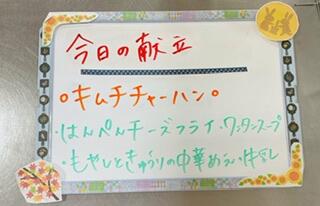 今日の献立
○キムチチャーハン○
・はんぺんチーズフライ・ワンタンスープ
・もやしときゅうりの中華あえ・牛乳